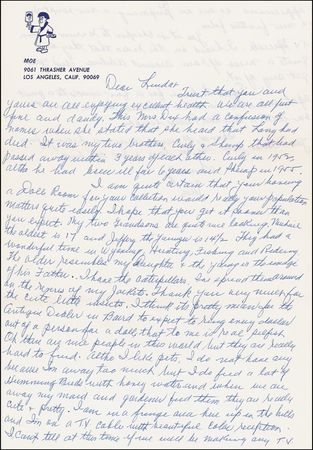 MOE
9061 THRASHER AVENUE
LOS ANGELES, CALIF. 90069
Dear Linda:
Trust that you and
yours are all enjoying excellent health. We are all just
fine and dandy. This Mrs had a confusion of
names when she stated that she heard that Larry had
died. It was my two brothers, Curly & Shemp that had
passed away within 3 years of each other. Curly in 1952,
altho he had been ill for 6 years and Shemp in 1955.
I am quite certain that your having
a Doll Room for your collection would your population
matters quite easily. I hope that you get it sooner than
you expect. My two Grandsons are quite good looking
the oldest is 17 and Jeffrey the younger is 14½. They had a
wonderful time in Hunting, Fishing and Riding
The older resembles my daughter & the younger is the image
of his Father. I have the Caterpillars. I've spread them around
on the of my jackets. Thank you very much for
the cute little insects. I think it's pretty for the
Antique Dealer in to expect to bring every dollar
out of a person for a doll, that to me is real
Oh there are nice people in this world but they are really
hard to find. Altho I like pets, I do not have any
because I'm away too much but I do feed a lot of
Humming Birds with honey water and when we are
away my maid and gardener feed them they are really
cute & pretty. I am in a fringe area here up in the hills
and I'm on a TV cable with beautiful color reception.
I can't tell at this time if we will be making any T.V.